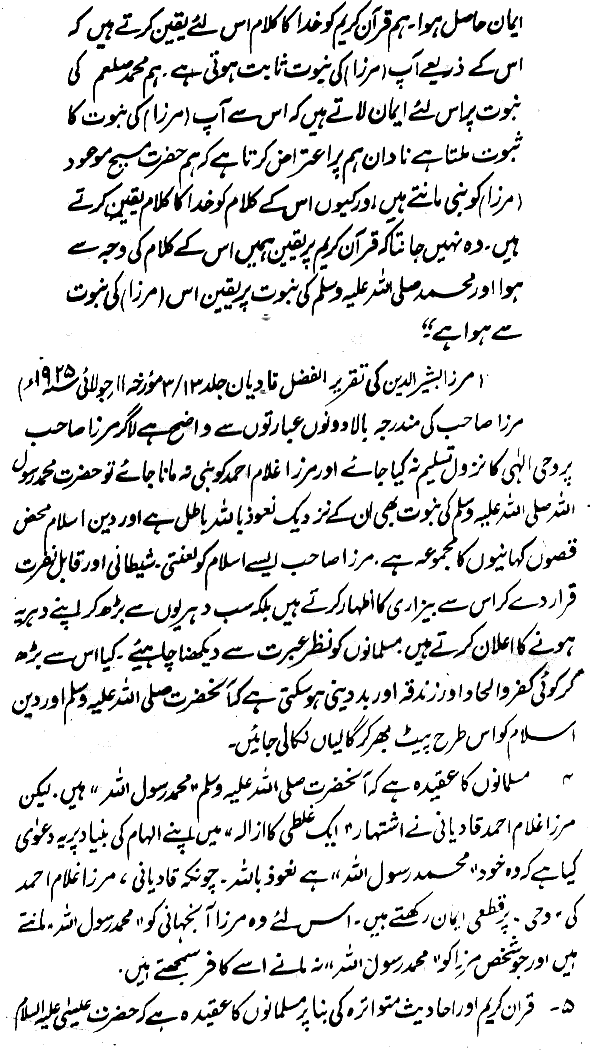 ایمان حاصل ہوا۔ ہم قرآن کریم کو خدا کا کلام اس لئے یقین کرتے ہیں کہ
اس کے ذریعے آپ (مرزا) کی نبوت ثابت ہوتی ہے۔ ہم محمد صلعم کی
نبوت پر اس لئے ایمان لاتے ہیں کہ اس سے آپ (مرزا) کی نبوت کا
ثبوت ملتا ہے نادان ہم پر اعتراض کرتا ہے کہ ہم حضرت مسیح موعود
(مرزا) کو نبی مانتے ہیں اور کیوں اس کے کلام کو خدا کا کلام یقین کرتے
ہیں۔ وہ نہیں جانتا کہ قرآن کریم پر یقین ہمیں اس کے کلام کی وجہ سے
ہوا اور محمد صلی اللہ علیہ وسلم کی نبوت پر یقین اس (مرزا) کی نبوت
سے ہوا ہے“
(مرزا بشیر الدین کی تقریر الفضل قادیان جلد ۳/۱۳ مؤرخہ ۱۱ جولائی ۱۹۲۵ء)
مرزا صاحب کی مندرجہ بالا دونوں عبارتوں سے واضح ہے اگر مرزا صاحب
پر وحی الٰہی کا نزول تسلیم نہ کیا جائے اور مرزا غلام احمد کو نبی نہ مانا جائے تو حضرت محمد رسول
اللہ صلی اللہ علیہ وسلم کی نبوت بھی ان کے نزدیک نعوذ باللہ باطل ہے اور دین اسلام محض
قصوں کہانیوں کا مجموعہ ہے۔ مرزا صاحب ایسے اسلام کو لعنتی۔ شیطانی اور قابل نفرت
قرار دے کر اس سے بیزاری کا اظہار کرتے ہیں بلکہ سب دہریوں سے بڑھ کر اپنے دہریہ
ہونے کا اعلان کرتے ہیں۔ مسلمانوں کو نظر عبرت سے دیکھنا چاہیئے۔ کیا اس سے بڑھ
کر کوئی کفر و الحاد اور زندقہ اور بد دینی ہو سکتی ہے کہ آنحضرت صلی اللہ علیہ وسلم اور دین
اسلام کو اس طرح پیٹ بھر کر گالیاں نکالی جائیں۔
۴ مسلمانوں کا عقیدہ ہے کہ آنحضرت صلی اللہ علیہ وسلم ”محمد رسول اللہ“ ہیں۔ لیکن
مرزا غلام احمد قادیانی نے اشتہار ”ایک غلطی کا ازالہ“ میں اپنے الہام کی بنیاد پر یہ دعویٰ
کیا ہے کہ وہ خود ”محمد رسول اللہ“ ہے نعوذ باللہ۔ چونکہ قادیانی، مرزا غلام احمد
کی ”وحی“ پر قطعی ایمان رکھتے ہیں۔ اس لئے وہ مرزا آنجہانی کو ”محمد رسول اللہ“ مانتے
ہیں اور جو شخص مرزا کو ”محمد رسول اللہ“ نہ مانے اسے کافر سمجھتے ہیں۔
۵- قرآن کریم اور احادیث متواترہ کی بنا پر مسلمانوں کا عقیدہ ہے کہ حضرت عیسیٰ علیہ السلام